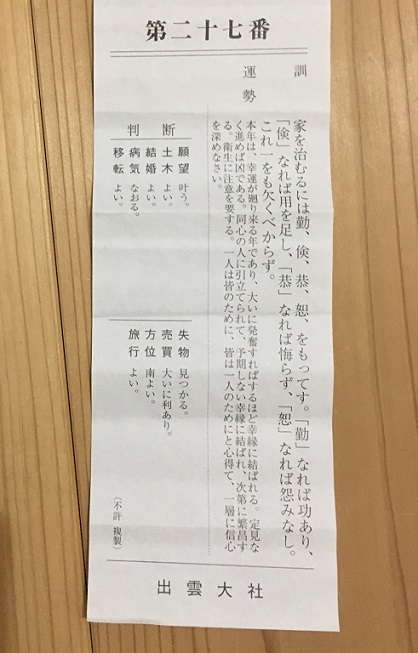 第二十七番
訓
家を治むるには勤、倹、恭、恕、をもってす。「勤」なれば功あり、
「倹」なれば用を足し、「恭」なれば侮らず、「恕」なれば怨みなし。
これ一をも欠くべからず。
運勢
本年は、幸運が廻り来る年であり、大いに発奮すればするほど幸縁に結ばれる。定見な
く進めば凶である。同心の人に引立てられて、予期しない幸縁に結ばれ、次第に繁昌す
る。衛生に注意を要する。一人は皆のために、皆は一人のためにと心得て、一層に信心
を深めなさい。
判断
願望 叶う。
土木 よい。
結婚 よい。
病気 なおる。
移転 よい。
失物 見つかる。
売買 大いに利あり。
方位 南よい。
旅行 よい。
(不許 複製)
出雲大社